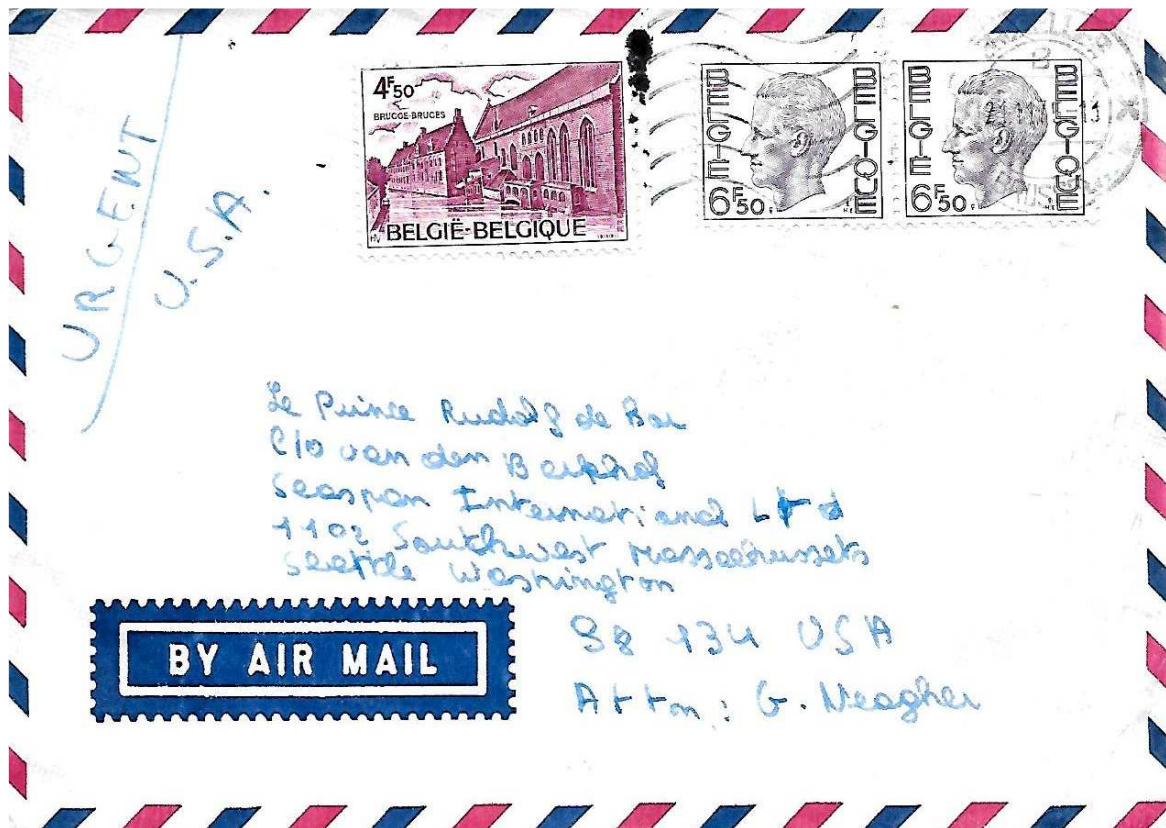 URGENT
U.S.A.
4F50
BRUGGE-BRUGES
BELGIË-BELGIQUE
BELGIE
BELGIQUE
6F50
BELGIE
BELGIQUE
6F50
Le Prince Rudolf de Bar
C/O van den Berkhof
Seaspan International Ltd
1102 Southwest Massachussets
Seattle Washington
98 134 USA
Attn: G. Meagher
BY AIR MAIL